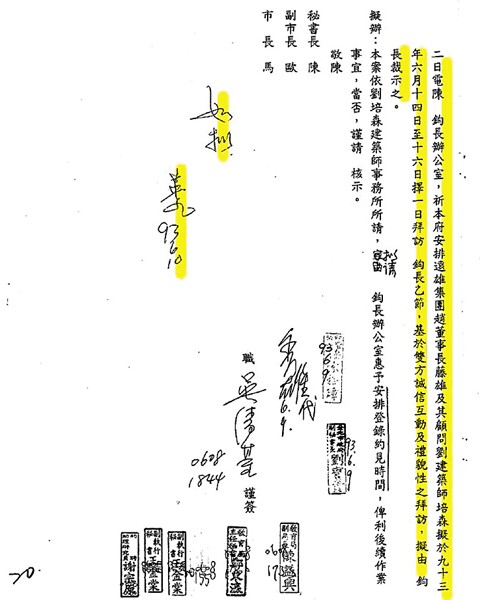 二日電陳　鈞長辦公室，祈本府安排遠雄集團趙董事長藤雄及其顧問劉建築師培森擬於九十三
年六月十四日至十六日擇一日拜訪　鈞長乙節，基於雙方誠信互動及禮貌性之拜訪，擬由　鈞
長裁示之。
擬辦：本案依劉培森建築師事務所所請，擬請　鈞長辦公室惠予安排登錄約見時間，俾利後續作業
事宜，當否，謹請　核示。
敬陳
秘書長　陳
副市長　歐
市　長　馬
如擬
93
6
10
93
6
9
代
6.9.
93.6.9
職　吳清基　謹簽
0608
1844
20.